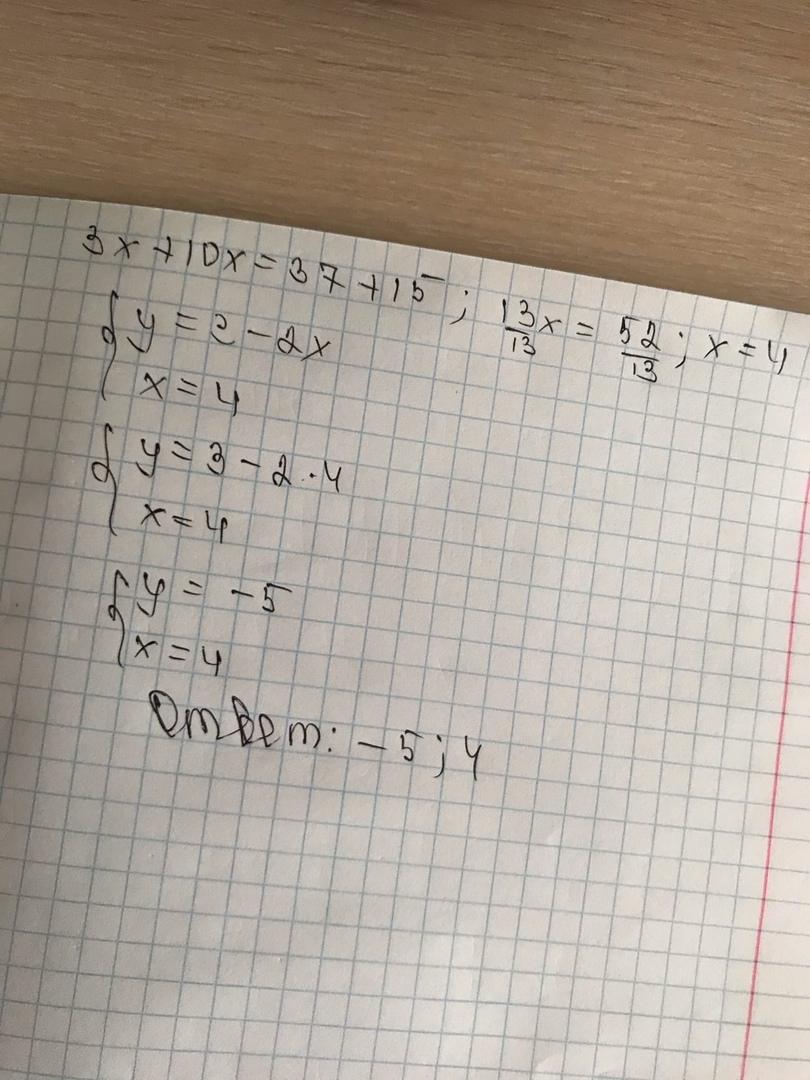 3x+10x=37+15; 13/13 x = 52/13; x=4
{ y = 2 - 2x
x = 4
{ y = 3 - 2·4
x = 4
{ y = -5
x = 4
Ответ: -5; 4